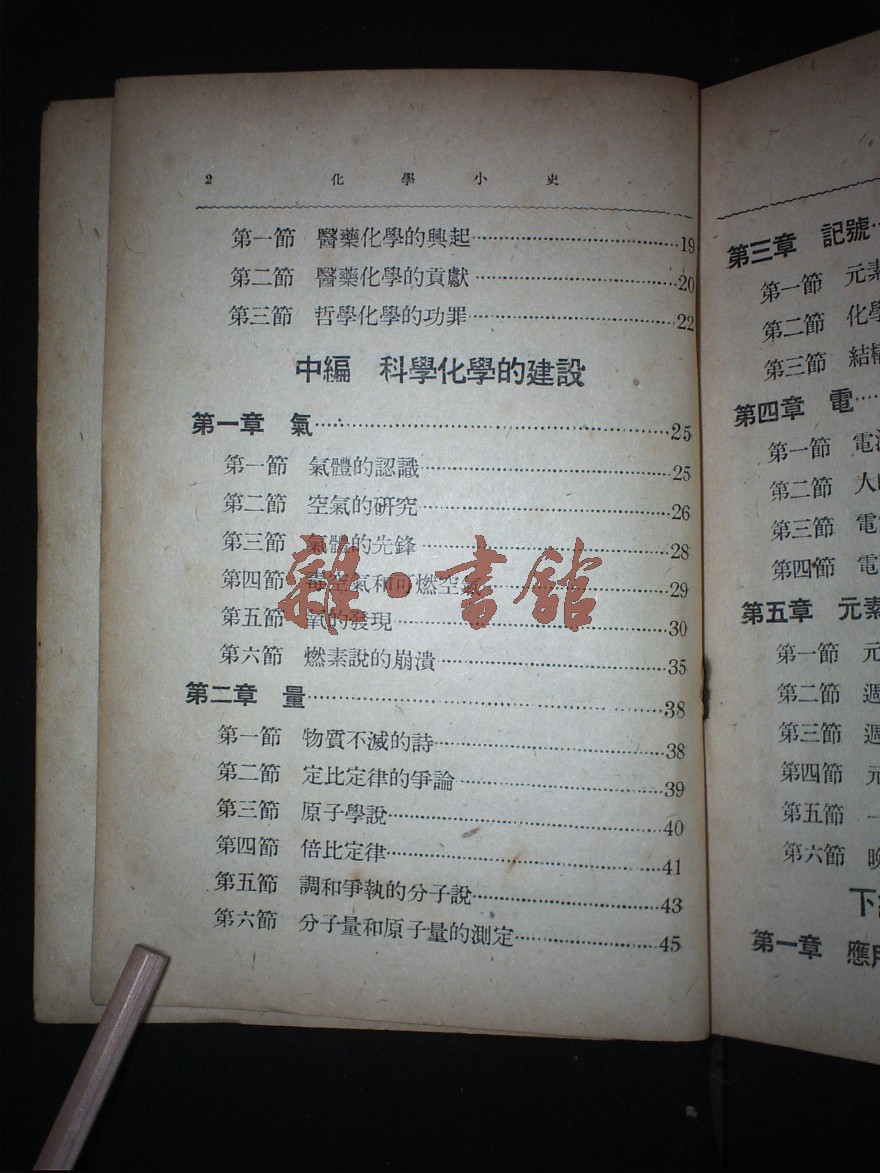 2 化學小史
第一節 醫藥化學的興起 19
第二節 醫藥化學的貢獻 20
第三節 哲學化學的功罪 22
中編 科學化學的建設
第一章 氣 25
第一節 氣體的認識 25
第二節 空氣的研究 26
第三節 氣體的先鋒 28
第四節 毒空氣和可燃空氣 29
第五節 氧的發現 30
第六節 燃素說的崩潰 35
雜·書館
第二章 量 38
第一節 物質不滅的詩 38
第二節 定比定律的爭論 39
第三節 原子學說 40
第四節 倍比定律 41
第五節 調和爭執的分子說 43
第六節 分子量和原子量的測定 45
第三章 記號
第一節 元素
第二節 化學
第三節 結構
第四章 電
第一節 電
第二節
第三節 電
第四節 電
第五章 元素
第一節 元
第二節 週
第三節 週
第四節 元
第五節 一
第六節 晚
下
第一章 應用